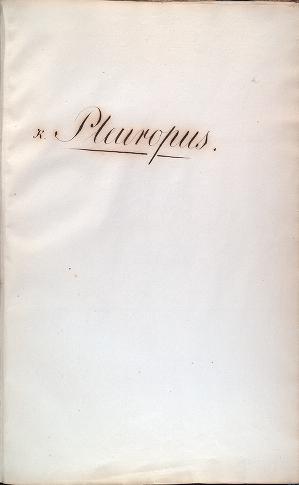 K. Pleuropus.